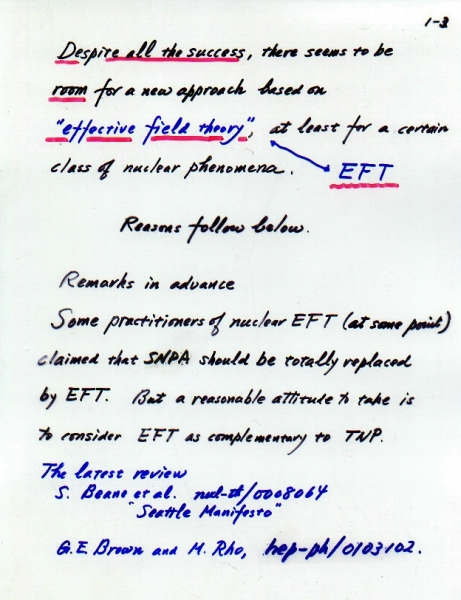 1-3
Despite all the success, there seems to be
room for a new approach based on
"effective field theory", at least for a certain
class of nuclear phenomena. EFT
Reasons follow below.
Remarks in advance
Some practitioners of nuclear EFT (at some point)
claimed that SNPA should be totally replaced
by EFT. But a reasonable attitude to take is
to consider EFT as complementary to TNP.
The latest review
S. Beane et al. nucl-th/0008064
"Seattle Manifesto"
G.E. Brown and M. Rho, hep-ph/0103102.